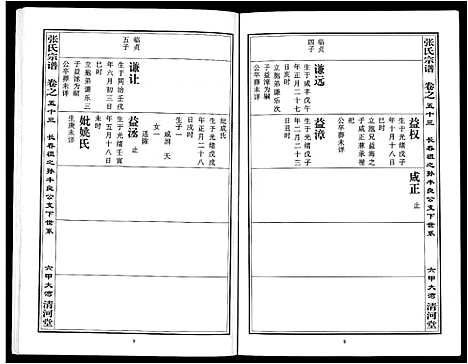 张氏宗谱 卷之五十三 长春祖之孙牛良公支下世系
六甲大湾 清河堂
临贞
四子
谦远
生于咸丰戊午
年正月二十七
日亥时
立胞弟谦乐次
子益漳为嗣
公卒葬未详
益漳
生于光绪戊子
年二月二十三
日丑时
益权
生于光绪戊子
年十月十八日
巳时
立胞兄益海之
子咸正兼承
祀
公卒葬未详
咸正 止
张氏宗谱 卷之五十三 长春祖之孙牛良公支下世系
六甲大湾 清河堂
临贞
五子
谦让
生于同治壬戌
年六月初三日
巳时
立胞弟谦乐三
子益涤为嗣
公卒葬未详
妣成氏
生于光绪戊戌
年正月二十八
日戌时
生子一
咸 天
女一
适陈
益涤 止
生于光绪壬辰
年五月十八日
未时
妣姚氏
生庚未详